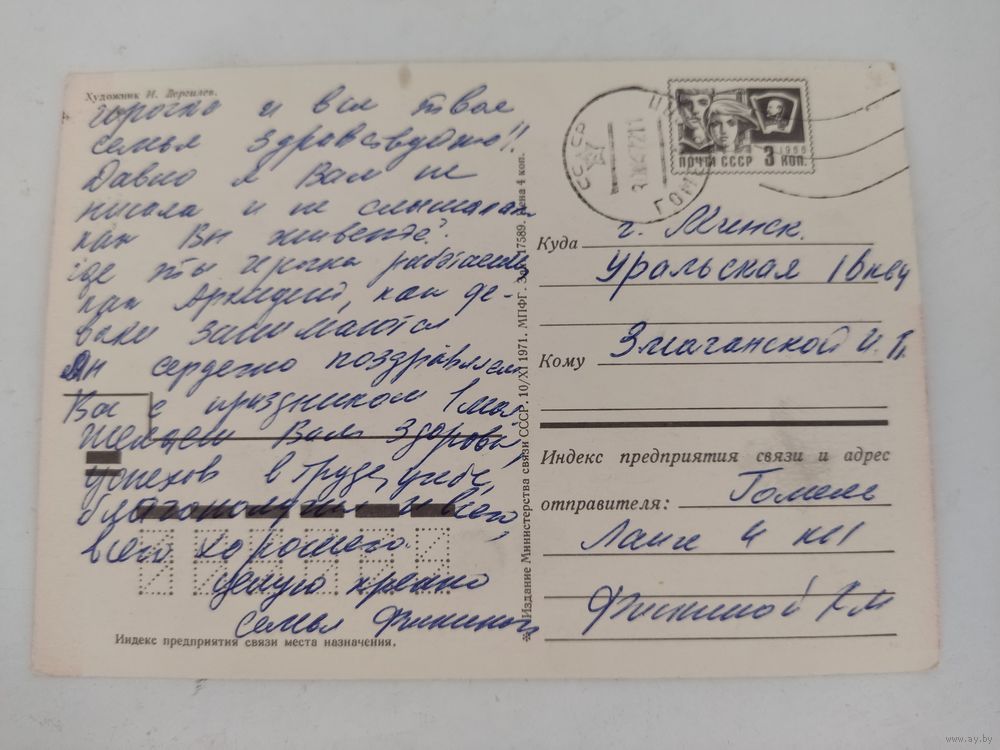 Художник И. Дергилев.
и вся твоя
семья здравствуйте!!
Давно я Вам не
писала и не слышала
как Вы живете?
где ты работаешь
как Аркадий, как де-
вочки занимаются
сердечно поздравляем
Вас с праздником 1 мая
Желаем Вам здоровья,
успехов в труде, учебе,
благополучия и всего,
всего хорошего.
целую крепко
семья
Индекс предприятия связи места назначения.
Издание Министерства связи СССР. 10/XI 1971. МПФГ. Зак. 17589. Цена 4 коп.
СССР
ГОМЕ
ПОЧТА СССР 3 КОП.
1966
Куда г. Минск.
Уральская 1
Кому Змачанской И. П.
Индекс предприятия связи и адрес
отправителя: Гомель
Ланге 4 кв 1
www.ay.by